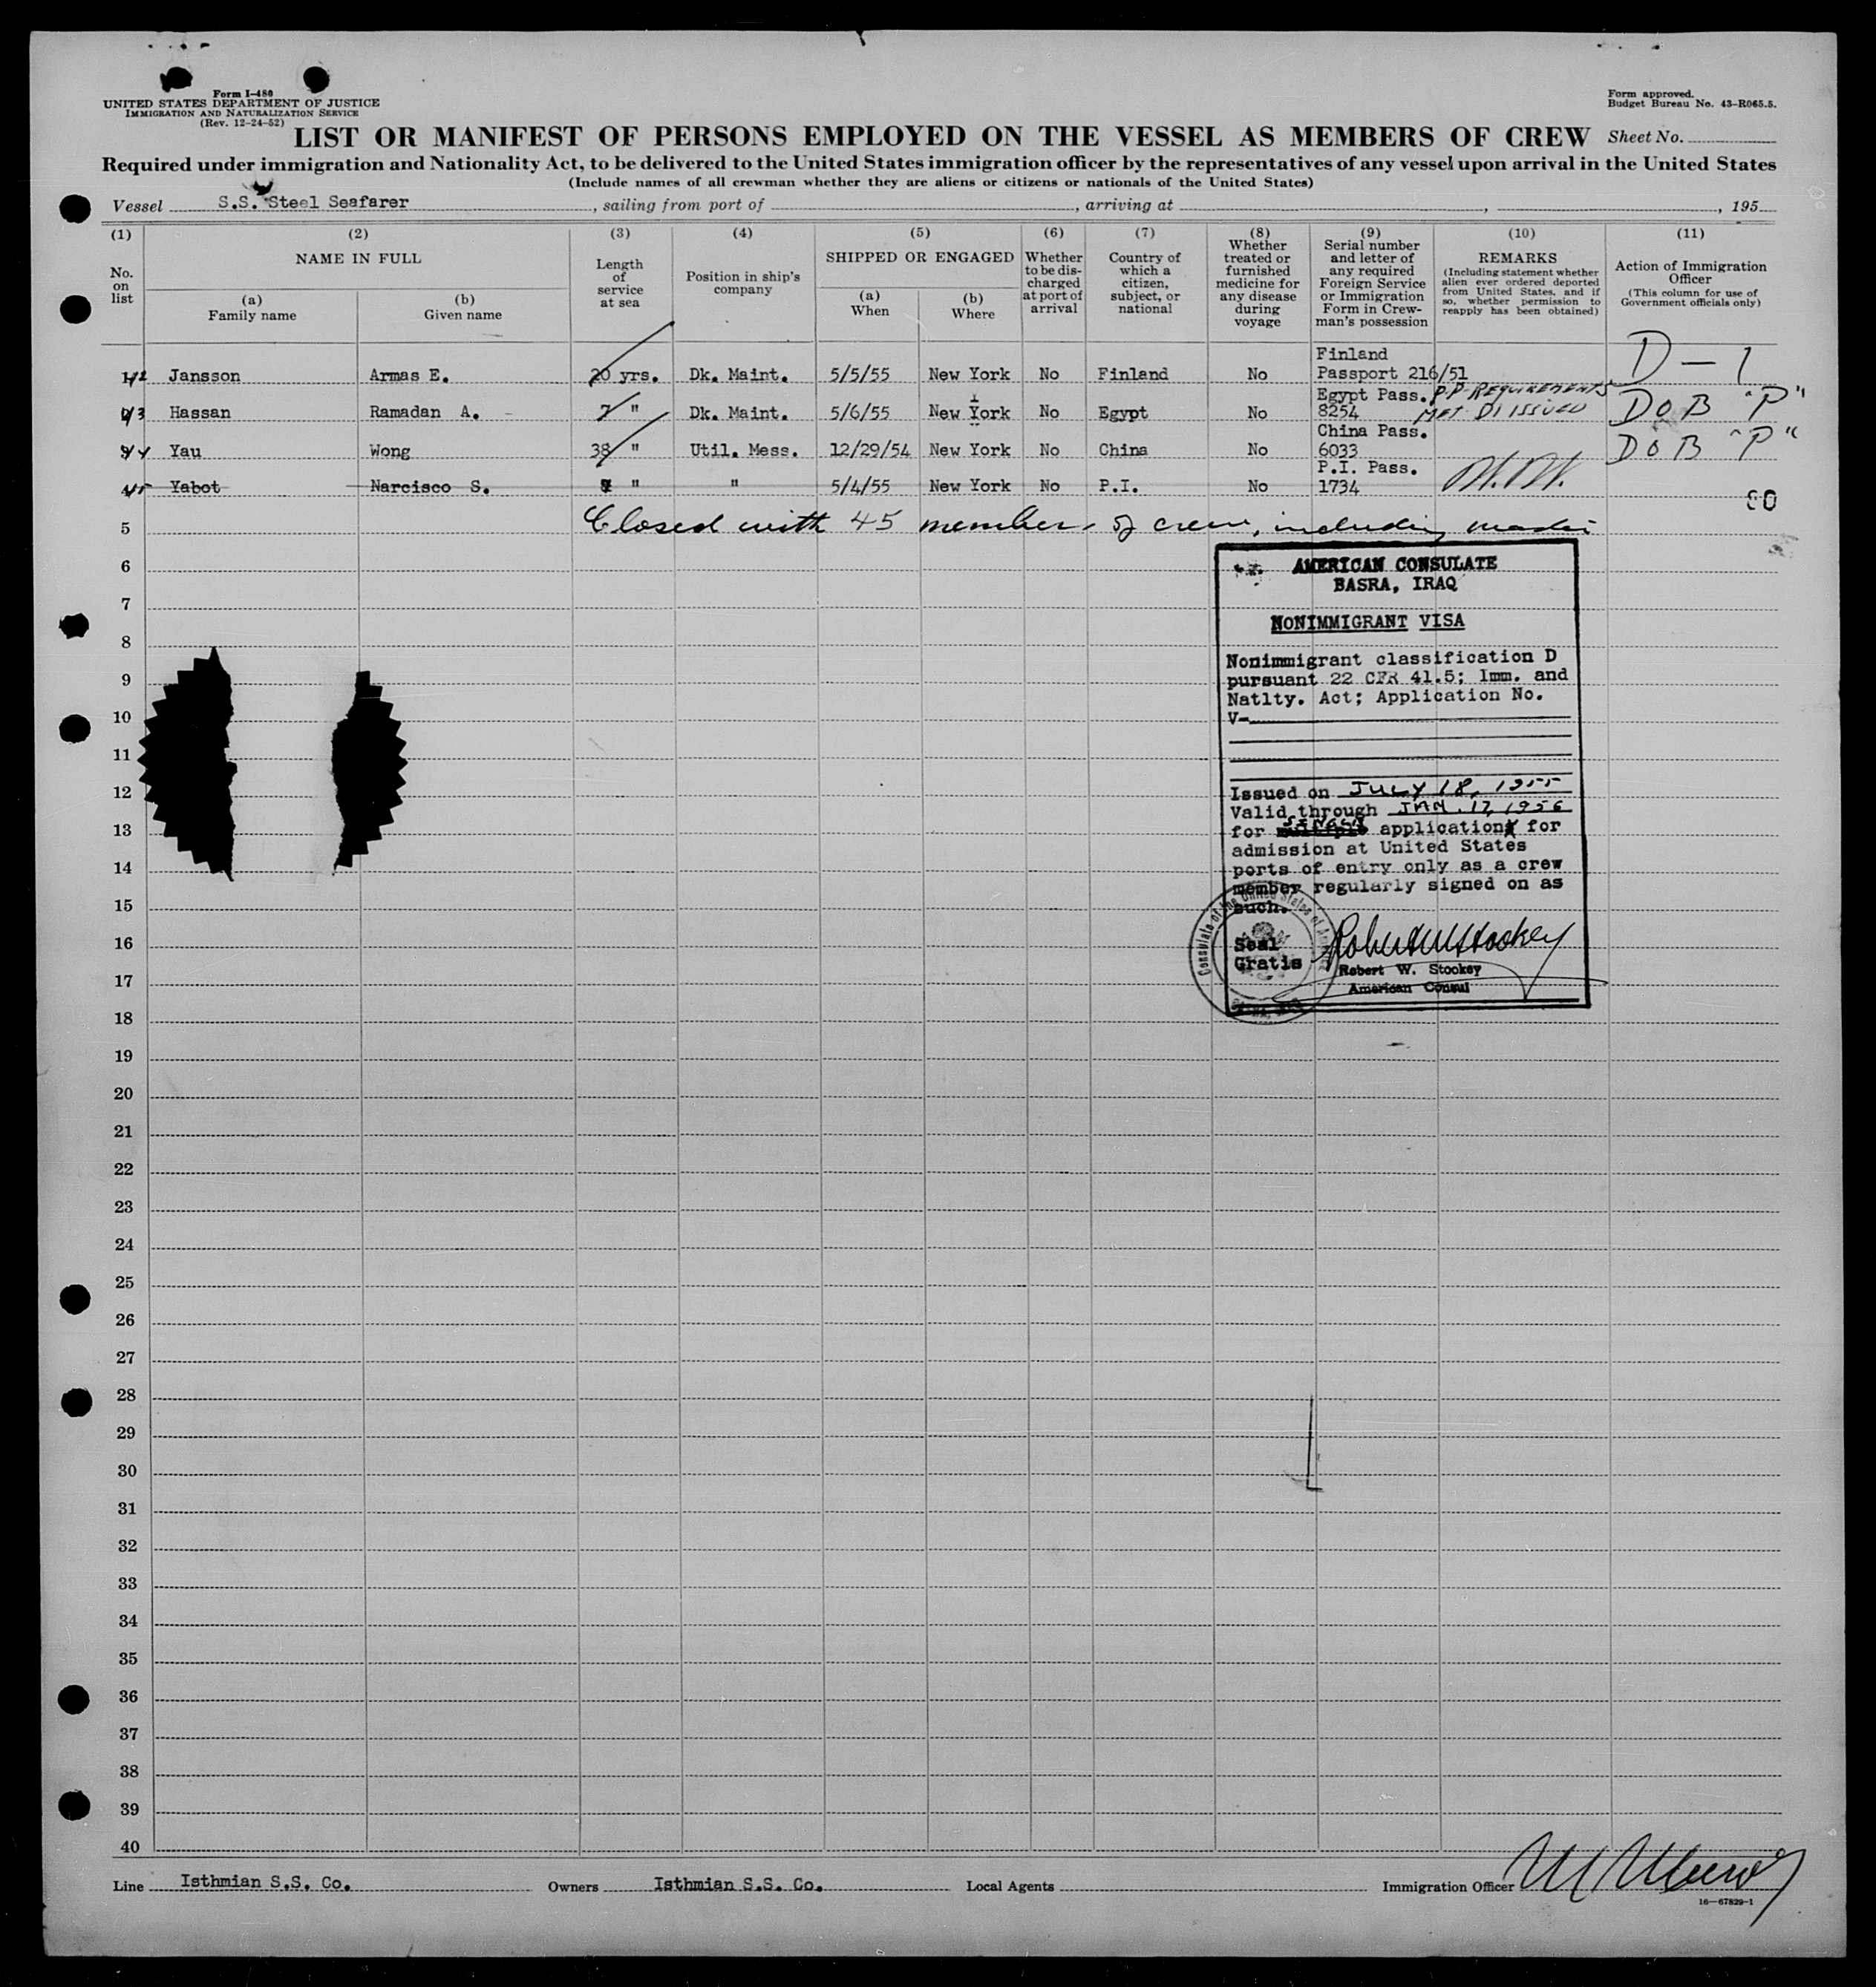 Form I-480
UNITED STATES DEPARTMENT OF JUSTICE
IMMIGRATION AND NATURALIZATION SERVICE
(Rev. 12-24-52)
Form approved.
Budget Bureau No. 43-R065.5.
LIST OR MANIFEST OF PERSONS EMPLOYED ON THE VESSEL AS MEMBERS OF CREW
Sheet No.
Required under immigration and Nationality Act, to be delivered to the United States immigration officer by the representatives of any vessel upon arrival in the United States
(Include names of all crewman whether they are aliens or citizens or nationals of the United States)
Vessel S.S. Steel Seafarer, sailing from port of , arriving at , , 195
(1) No. on list
(2) NAME IN FULL
(a) Family name
(b) Given name
(3) Length of service at sea
(4) Position in ship's company
(5) SHIPPED OR ENGAGED
(a) When
(b) Where
(6) Whether to be discharged at port of arrival
(7) Country of which a citizen, subject, or national
(8) Whether treated or furnished medicine for any disease during voyage
(9) Serial number and letter of any required Foreign Service or Immigration Form in Crewman's possession
(10) REMARKS (Including statement whether alien ever ordered deported from United States, and if so, whether permission to reapply has been obtained)
(11) Action of Immigration Officer (This column for use of Government officials only)
Jansson Armas E. 20 yrs. Dk. Maint. 5/5/55 New York No Finland No Finland Passport 216/51 D-1
Hassan Ramadan A. 7 " Dk. Maint. 5/6/55 New York No Egypt No Egypt Pass. 8254 P.P. REQUIREMENTS MET D1 ISSUED D O B "P"
Yau Wong 38 " Util. Mess. 12/29/54 New York No China No China Pass. 6033 D O B "P"
Yabot Narcisco S. " " 5/4/55 New York No P.I. No P.I. Pass. 1734
80
5 Closed with 45 members of crew, including master
6
7
8
9
10
11
12
13
14
15
16
17
18
19
20
21
22
23
24
25
26
27
28
29
30
31
32
33
34
35
36
37
38
39
40
AMERICAN CONSULATE
BASRA, IRAQ
NONIMMIGRANT VISA
Nonimmigrant classification D
pursuant 22 CFR 41.5; Imm. and
Natlty. Act; Application No.
V-
Issued on JULY 18, 1955
Valid through JAN. 17, 1956
for SINGLE multiple applications for
admission at United States
ports of entry only as a crew
member regularly signed on as
such.
Seal
Gratis
Robert W. Stookey
Robert W. Stookey
American Consul
Consulate of the United States of America
Line Isthmian S.S. Co. Owners Isthmian S.S. Co. Local Agents Immigration Officer
16-67829-1